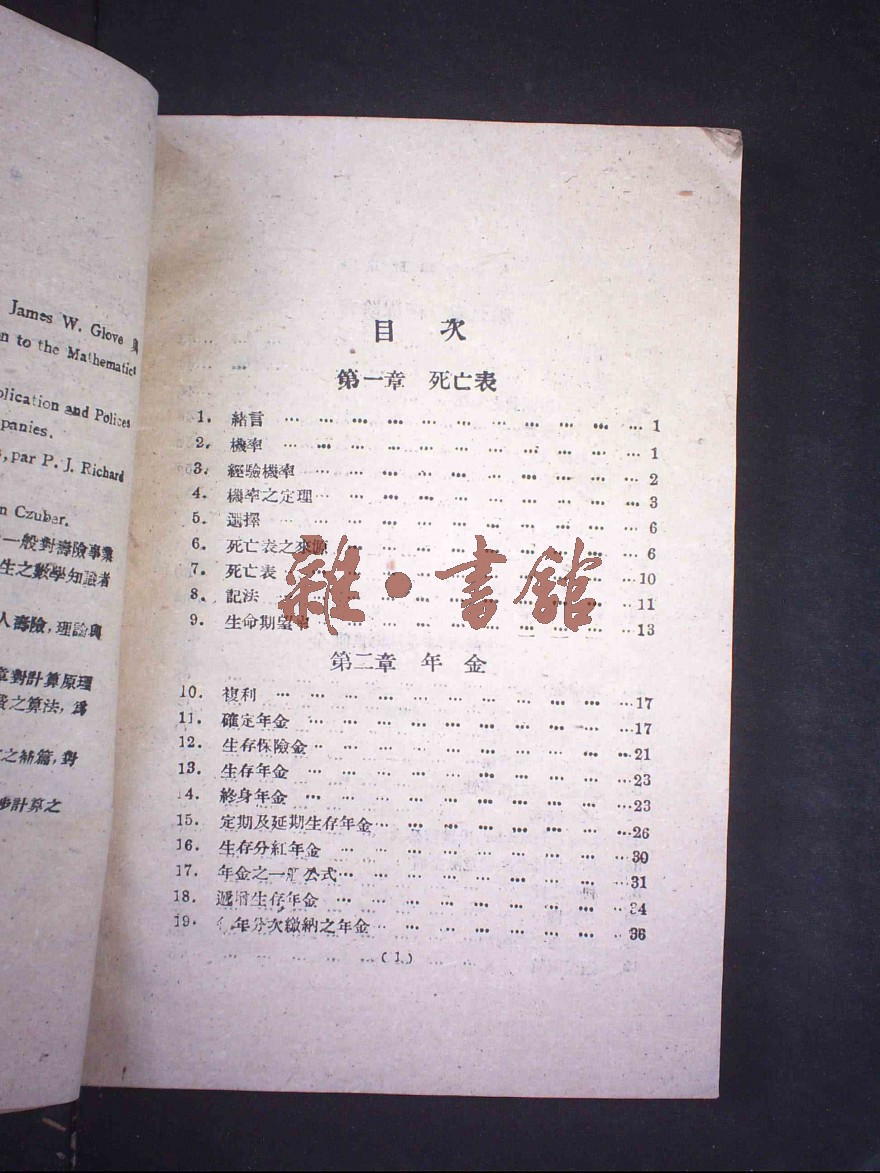 James W. Glove 與
n to the Mathematics
plication and Polices
panies.
, par P. J. Richard
n Czuber.
一般對壽險事業
生之數學知識者
人壽險，理論與
章對計算原理
費之算法，為
之補篇，對
步計算之
目 次
第一章 死亡表
1. 緒言 … 1
2. 機率 … 1
3. 經驗機率 … 2
4. 機率之定理 … 3
5. 選擇 … 6
6. 死亡表之來源 … 6
7. 死亡表 … 10
8. 記法 … 11
9. 生命期望率 … 13
第二章 年 金
10. 複利 … 17
11. 確定年金 … 17
12. 生存保險金 … 21
13. 生存年金 … 23
14. 終身年金 … 23
15. 定期及延期生存年金 … 26
16. 生存分紅年金 … 30
17. 年金之一般公式 … 31
18. 遞增生存年金 … 34
19. 年分次繳納之年金 … 36
(1)
雜·書館